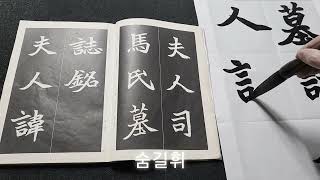 夫人司
馬氏墓
誌銘
夫人諱
墓
人言
숨길휘